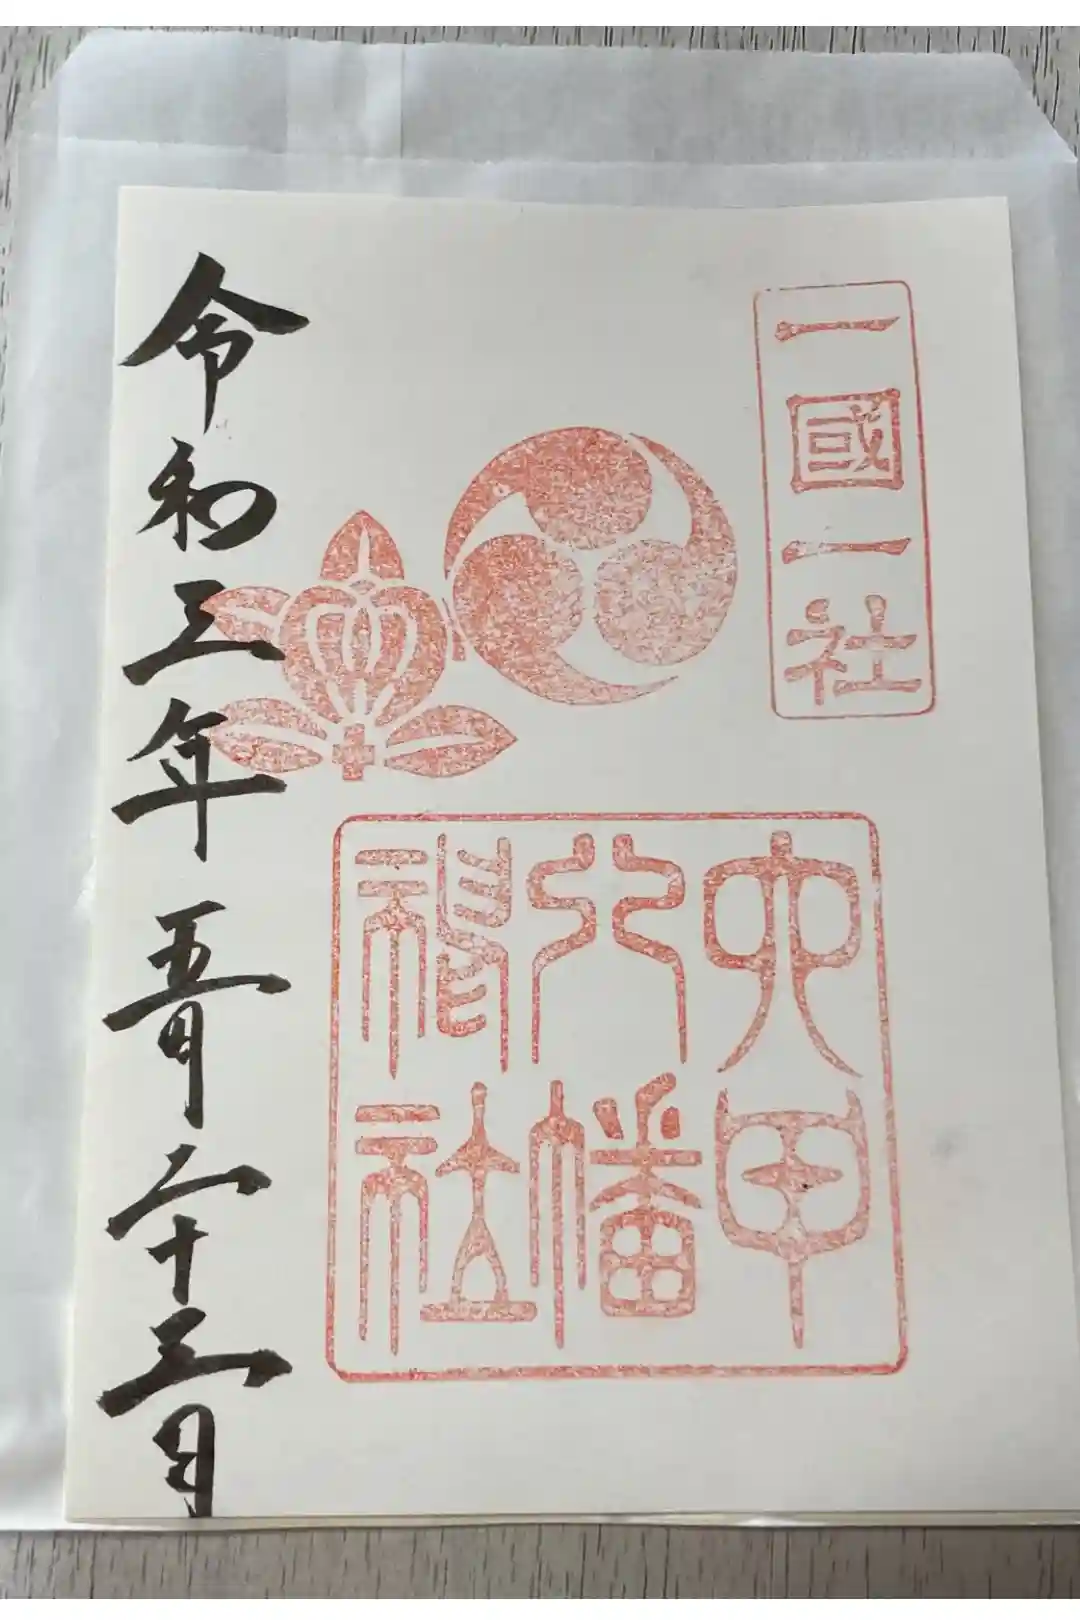 一國一社
六甲
八幡
神社
令和三年五月二十三日